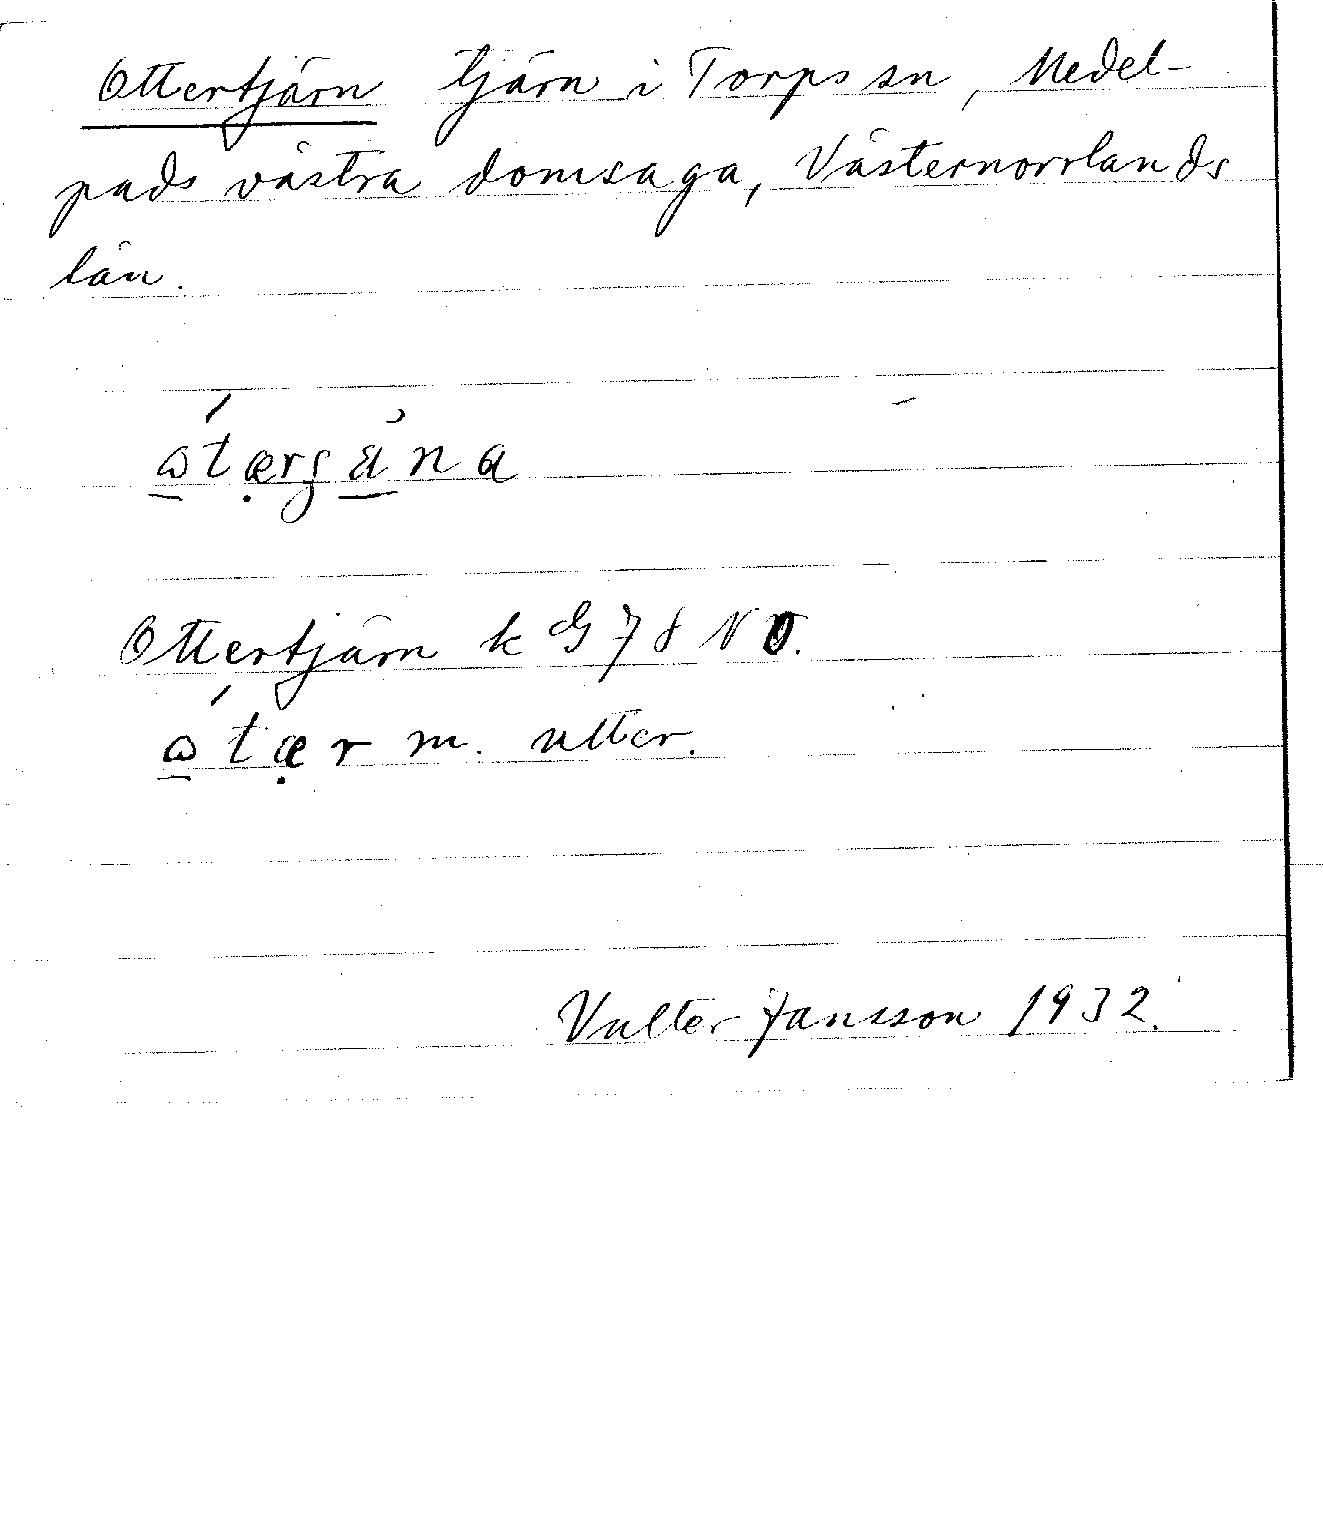 Ottertjärn tjärn i Torps sn, Medel-
pads västra domsaga, Västernorrlands
län.
Ottertjärn k G 78 NO.
m. utter.
Valter Jansson 1932.